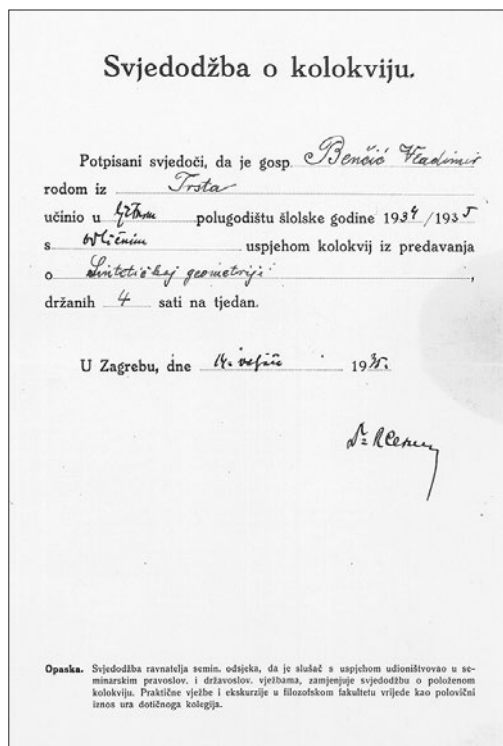 Svjedodžba o kolokviju.
Potpisani svjedoči, da je gosp. Benčić Vladimir
rodom iz Trsta
učinio u ljetnom polugodištu šlolske godine 1934/1935
s odličnim uspjehom kolokvij iz predavanja
o Sintetičkoj geometriji,
držanih 4 sati na tjedan.
U Zagrebu, dne 14. 1935.
Dr
Opaska. Svjedodžba ravnatelja semin. odsjeka, da je slušač s uspjehom udioništvovao u se-
minarskim pravoslov. i državoslov. vježbama, zamjenjuje svjedodžbu o položenom
kolokviju. Praktične vježbe i ekskurzije u filozofskom fakultetu vrijede kao polovični
iznos ura dotičnoga kolegija.